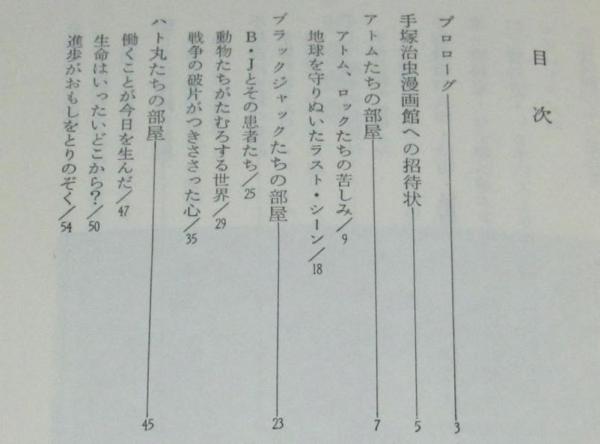 目次
プロローグ 3
手塚治虫漫画館への招待状 5
アトムたちの部屋 7
アトム、ロックたちの苦しみ/9
地球を守りぬいたラスト・シーン/18
ブラックジャックたちの部屋 23
B・Jとその患者たち/25
動物たちがたむろする世界/29
戦争の破片がつきささった心/35
ハト丸たちの部屋 45
働くことが今日を生んだ/47
生命はいったいどこから?/50
進歩がおもしをとりのぞく/54